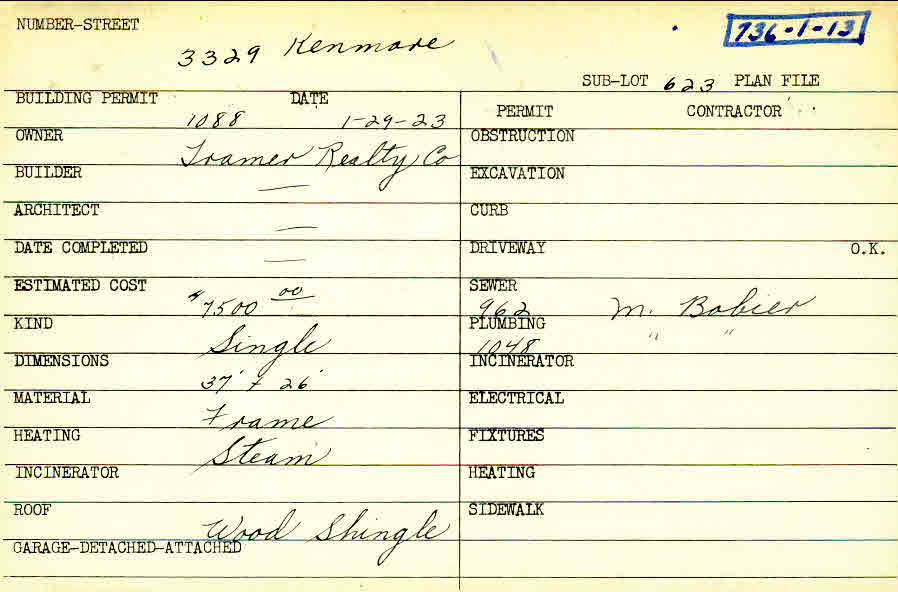 NUMBER-STREET
3329 Kenmore
736-1-13
SUB-LOT 623 PLAN FILE
BUILDING PERMIT DATE
1088 1-29-23
PERMIT CONTRACTOR
OWNER
Tramer Realty Co
OBSTRUCTION
BUILDER
—
EXCAVATION
ARCHITECT
—
CURB
DATE COMPLETED
—
DRIVEWAY O.K.
ESTIMATED COST
$7500 00
SEWER
962 M. Bobier
KIND
Single
PLUMBING
1048 " "
DIMENSIONS
37' + 26'
INCINERATOR
MATERIAL
Frame
ELECTRICAL
HEATING
Steam
FIXTURES
INCINERATOR
HEATING
ROOF
Wood Shingle
SIDEWALK
GARAGE-DETACHED-ATTACHED